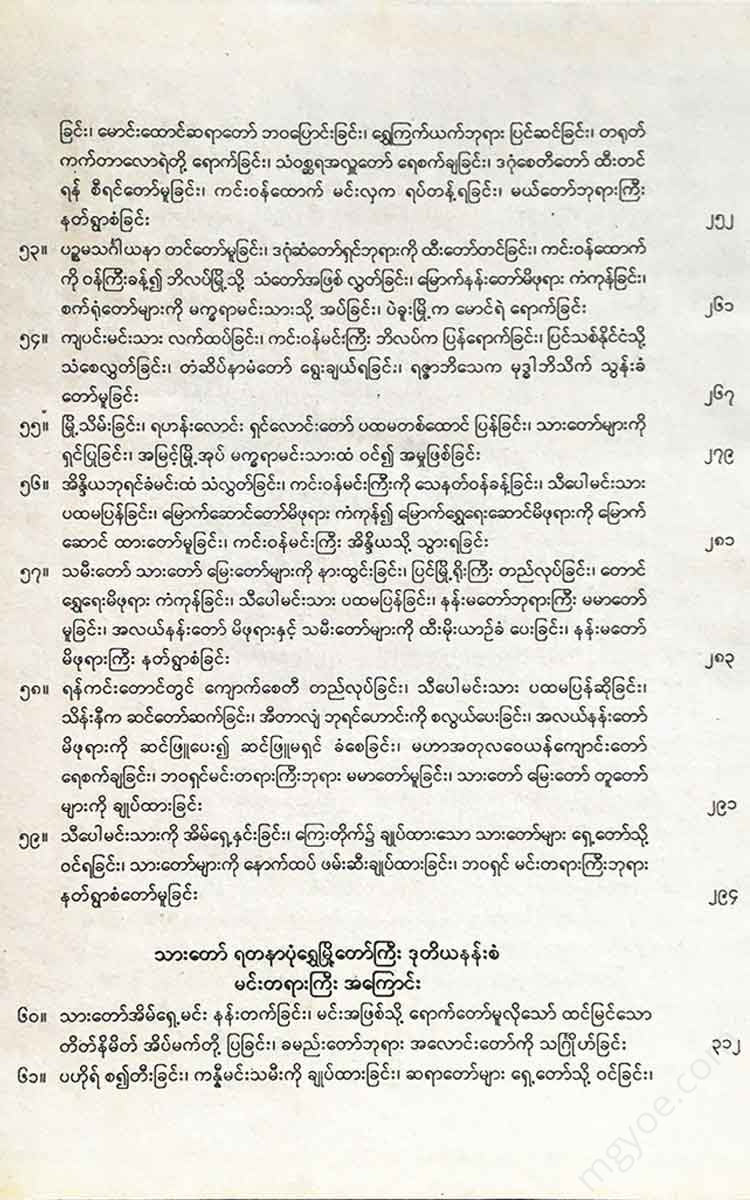 ခြင်း၊ မောင်းထောင်ဆရာတော် ဘဝပြောင်းခြင်း၊ ရွှေကြက်ယက်ဘုရား ပြင်ဆင်ခြင်း၊ တရုတ်
ကက်တာလောရဲတို့ ရောက်ခြင်း၊ သံဝစ္ဆရအလှူတော် ရေစက်ချခြင်း၊ ဒဂုံစေတီတော် ထီးတင်
ရန် စီရင်တော်မူခြင်း၊ ကင်းဝန်ထောက် မင်းလှက ရပ်တန့်ရခြင်း၊ မယ်တော်ဘုရားကြီး
နတ်ရွာစံခြင်း ၂၅၂
၅၃။ ပဉ္စမသင်္ဂါယနာ တင်တော်မူခြင်း၊ ဒဂုံဆံတော်ရှင်ဘုရားကို ထီးတော်တင်ခြင်း၊ ကင်းဝန်ထောက်
ကို ဝန်ကြီးခန့်၍ ဘိလပ်မြို့သို့ သံတော်အဖြစ် လွှတ်ခြင်း၊ မြောက်နန်းတော်မိဖုရား ကံကုန်ခြင်း၊
စက်ရုံတော်များကို မက္ခရာမင်းသားသို့ အပ်ခြင်း၊ ပဲခူးမြို့က မောင်ရဲ ရောက်ခြင်း ၂၆၁
၅၄။ ကျပင်းမင်းသား လက်ထပ်ခြင်း၊ ကင်းဝန်မင်းကြီး ဘိလပ်က ပြန်ရောက်ခြင်း၊ ပြင်သစ်နိုင်ငံသို့
သံစေလွှတ်ခြင်း၊ တံဆိပ်နာမံတော် ရွေးချယ်ရခြင်း၊ ရဇ္ဇာဘိသေက မုဒ္ဓါဘိသိက် သွန်းခံ
တော်မူခြင်း ၂၆၇
၅၅။ မြို့သိမ်းခြင်း၊ ရဟန်းလောင်း ရှင်လောင်းတော် ပထမတစ်ထောင် ပြန်ခြင်း၊ သားတော်များကို
ရှင်ပြုခြင်း၊ အမြင့်မြို့အုပ် မက္ခရာမင်းသားထံ ဝင်၍ အမှုဖြစ်ခြင်း ၂၇၉
၅၆။ အိန္ဒိယဘုရင်ခံမင်းထံ သံလွှတ်ခြင်း၊ ကင်းဝန်မင်းကြီးကို သေနတ်ဝန်ခန့်ခြင်း၊ သီပေါမင်းသား
ပထမပြန်ခြင်း၊ မြောက်ဆောင်တော်မိဖုရား ကံကုန်၍ မြောက်ရွှေရေးဆောင်မိဖုရားကို မြောက်
ဆောင် ထားတော်မူခြင်း၊ ကင်းဝန်မင်းကြီး အိန္ဒိယသို့ သွားရခြင်း ၂၈၁
၅၇။ သမီးတော် သားတော် မြေးတော်များကို နားထွင်းခြင်း၊ ပြင်မြို့ရိုးကြီး တည်လုပ်ခြင်း၊ တောင်
ရွှေရေးမိဖုရား ကံကုန်ခြင်း၊ သီပေါမင်းသား ပထမပြန်ခြင်း၊ နန်းမတော်ဘုရားကြီး မမာတော်
မူခြင်း၊ အလယ်နန်းတော် မိဖုရားနှင့် သမီးတော်များကို ထီးမိုးယာဉ်ခံ ပေးခြင်း၊ နန်းမတော်
မိဖုရားကြီး နတ်ရွာစံခြင်း ၂၈၃
၅၈။ ရန်ကင်းတောင်တွင် ကျောက်စေတီ တည်လုပ်ခြင်း၊ သီပေါမင်းသား ပထမပြန်ဆိုခြင်း၊
သိန်းနီက ဆင်တော်ဆက်ခြင်း၊ အီတာလျံ ဘုရင်ဟောင်းကို စလွယ်ပေးခြင်း၊ အလယ်နန်းတော်
မိဖုရားကို ဆင်ဖြူပေး၍ ဆင်ဖြူမရှင် ခံစေခြင်း၊ မဟာအတုလဝေယန်ကျောင်းတော်
ရေစက်ချခြင်း၊ ဘဝရှင်မင်းတရားကြီးဘုရား မမာတော်မူခြင်း၊ သားတော် မြေးတော် တူတော်
များကို ချုပ်ထားခြင်း ၂၉၁
၅၉။ သီပေါမင်းသားကို အိမ်ရှေ့နှင်းခြင်း၊ ကြေးတိုက်၌ ချုပ်ထားသော သားတော်များ ရှေ့တော်သို့
ဝင်ရခြင်း၊ သားတော်များကို နောက်ထပ် ဖမ်းဆီးချုပ်ထားခြင်း၊ ဘဝရှင် မင်းတရားကြီးဘုရား
နတ်ရွာစံတော်မူခြင်း ၂၉၄
သားတော် ရတနာပုံရွှေမြို့တော်ကြီး ဒုတိယနန်းစံ
မင်းတရားကြီး အကြောင်း
၆၀။ သားတော်အိမ်ရှေ့မင်း နန်းတက်ခြင်း၊ မင်းအဖြစ်သို့ ရောက်တော်မူလိုသော် ထင်မြင်သော
တိတ်နိမိတ် အိပ်မက်တို့ ပြခြင်း၊ ခမည်းတော်ဘုရား အလောင်းတော်ကို သင်္ဂြိုဟ်ခြင်း ၃၁၂
၆၁။ ပဟိုရ် စ၍တီးခြင်း၊ ကန္နီမင်းသမီးကို ချုပ်ထားခြင်း၊ ဆရာတော်များ ရှေ့တော်သို့ ဝင်ခြင်း၊
mgyoe.com